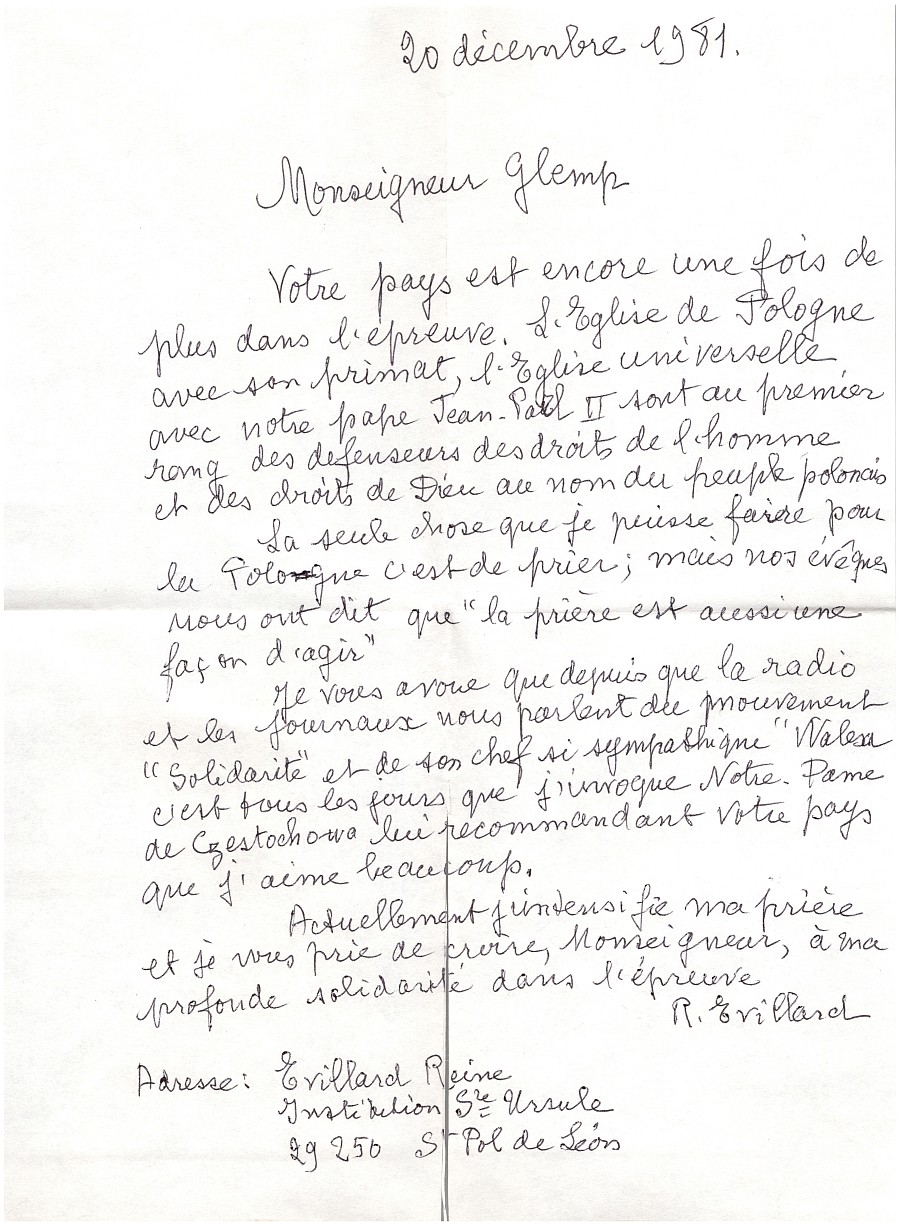 20 décembre 1981.
Monseigneur Glemp
Votre pays est encore une fois de
plus dans l'épreuve. L'Eglise de Pologne
avec son primat, l'Eglise universelle
avec notre pape Jean-Paul II sont au premier
rang des défenseurs des droits de l'homme
et des droits de Dieu au nom du peuple polonais
La seule chose que je puisse faire pour
la Pologne c'est de prier; mais nos évêques
nous ont dit que "la prière est aussi une
façon d'agir"
Je vous avoue que depuis que la radio
et les journaux nous parlent du mouvement
"Solidarité" et de son chef si sympathique "Walesa
c'est tous les jours que j'invoque Notre-Dame
de Częstochowa lui recommandant votre pays
que j'aime beaucoup.
Actuellement j'intensifie ma prière
et je vous prie de croire, Monseigneur, à ma
profonde solidarité dans l'épreuve
R. Evillard
Adresse: Evillard Reine
Institution Ste Ursule
29 250 St Pol de Léon